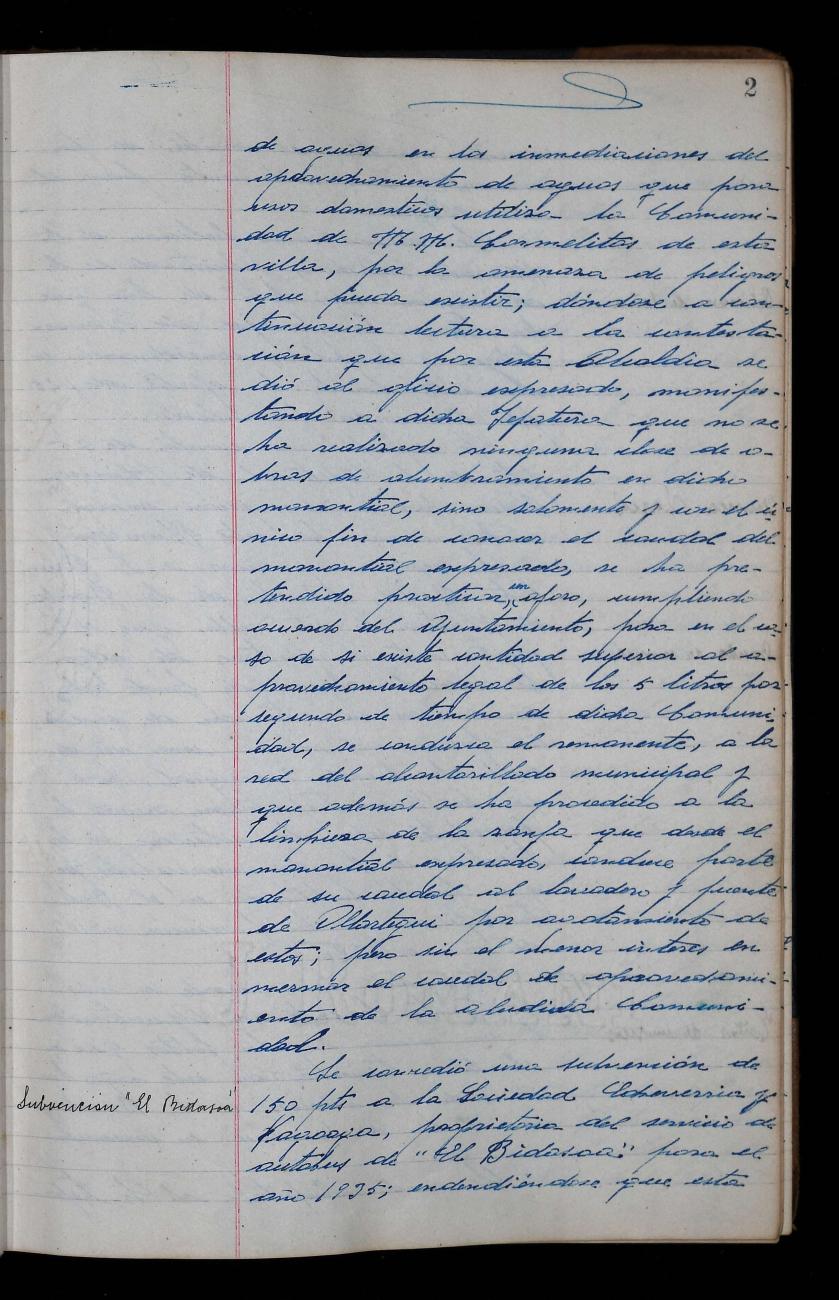 2
de aguas en las inmediaciones del
aprovechamiento de aguas que para
usos domesticos utiliza la Comuni-
dad de MM. Carmelitas de esta
villa, por la amenaza de peligros
que pueda existir; dándose a con-
tinuación lectura a la contesta-
ción que por esta Alcaldia se
dió al oficio expresado, manifes-
tando a dicha Jefatura que no se
ha realizado ninguna clase de o-
bras de alumbramiento en dicho
manantial, sino solamente y con el ú-
nico fin de conocer el caudal del
manantial expresado, se ha pre-
tendido practicar, un aforo, cumpliendo
acuerdo del Ayuntamiento, para en el ca-
so de si existe cantidad superior al a-
provechamiento legal de los 5 litros por
segundo de tiempo de dicha Comuni-
dad, se conduzca el remanente, a la
red del alcantarillado municipal y
que además se ha procedido a la
limpieza de la zanja que desde el
manantial expresado, conduce parte
de su caudal al lavadero y fuente
de por acotamiento de
estos; pero sin el menor interes en
mermar el caudal de aprovechami-
ento de la aludida Comuni-
dad.
Se concedió una subvención de
Subvencion "El Bidasoa"
150 pts a la Sociedad Echeverria y
propietaria del servicio de
autobus de "El Bidasoa" para el
año 1935; endendiéndose que esta